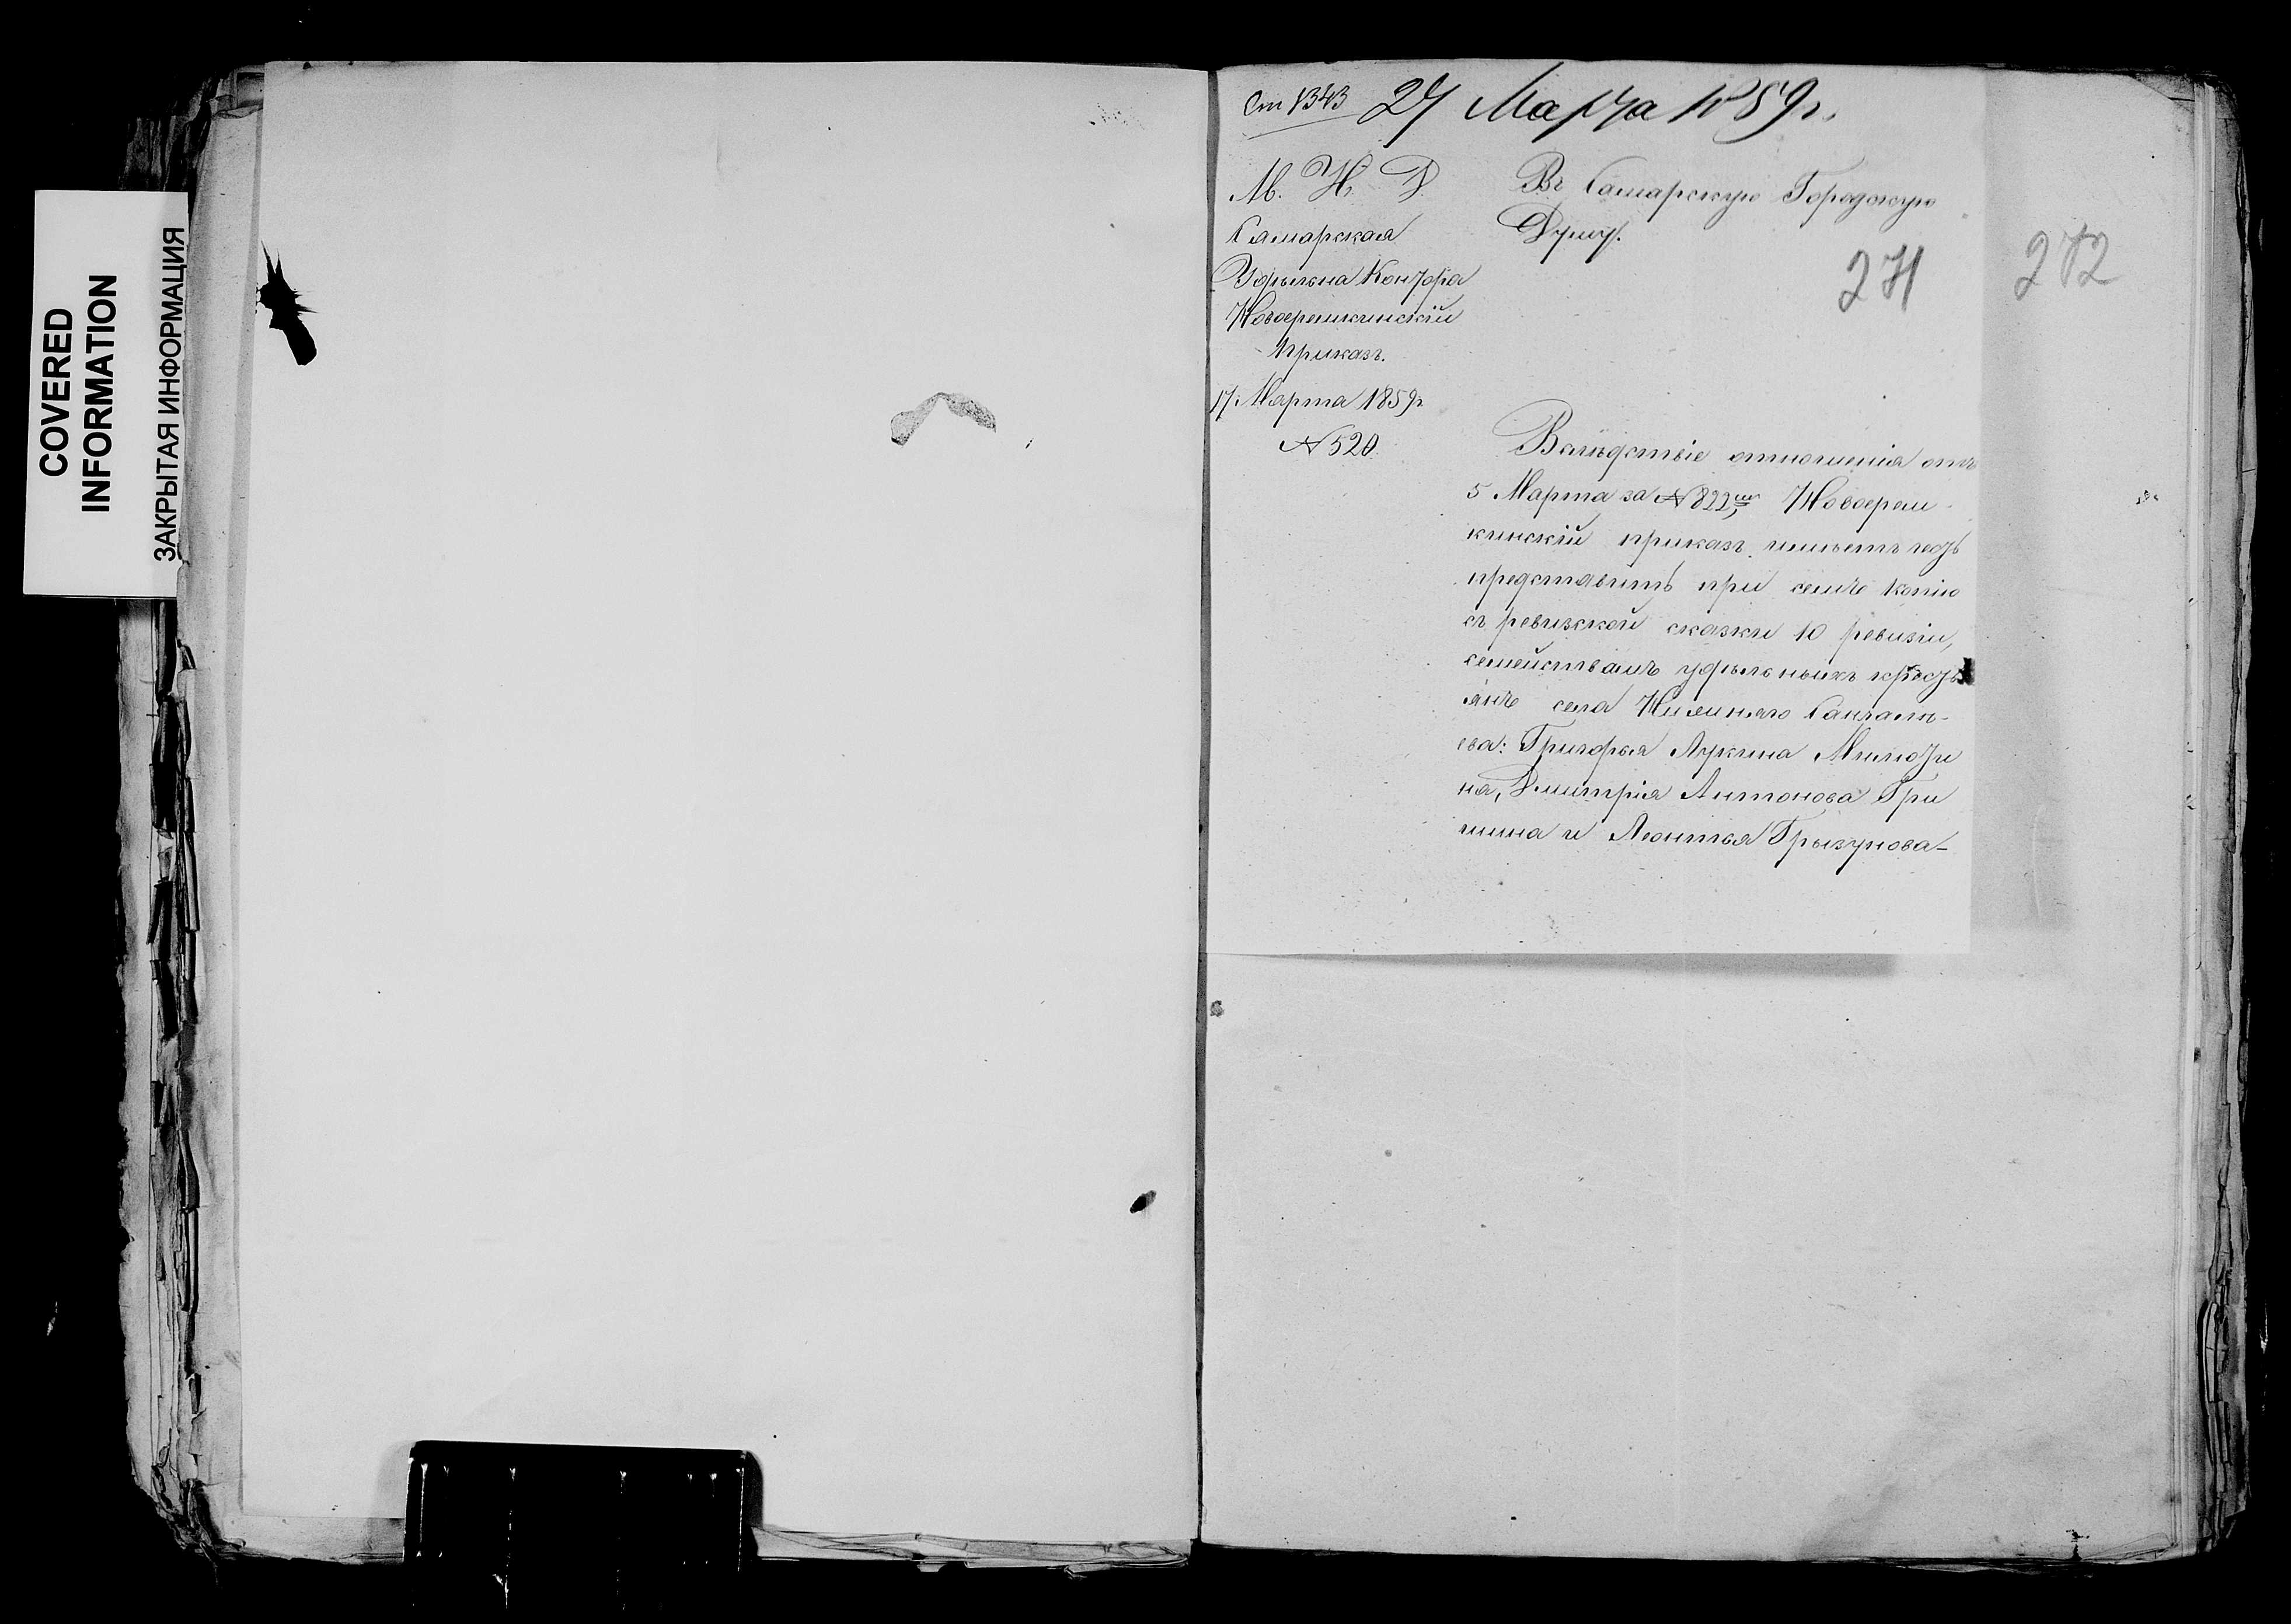 COVERED
INFORMATION
ЗАКРЫТАЯ ИНФОРМАЦИЯ
Ст 1343 27 Марта 1859 г.
М. И. Д.
Самарская
Удѣльна Контора
Новоерешкинскій
приказъ.
17 Марта 1859 г
№ 520
Въ Самарскую Городскую
Думу.
271
272
Вслѣдствіе отношенія отъ
5 Марта за № 822мъ, Новоереш
кинскій приказъ имѣетъ честь
представить при семъ копію
съ ревизской сказки 10 ревизіи,
семействамъ удѣльныхъ кресть
янъ села Нижняго Санчалѣ-
ева: Григорья Лукина Милюти
на, Дмитрія Антонова Гри
шина и Леонтья Грызунова-